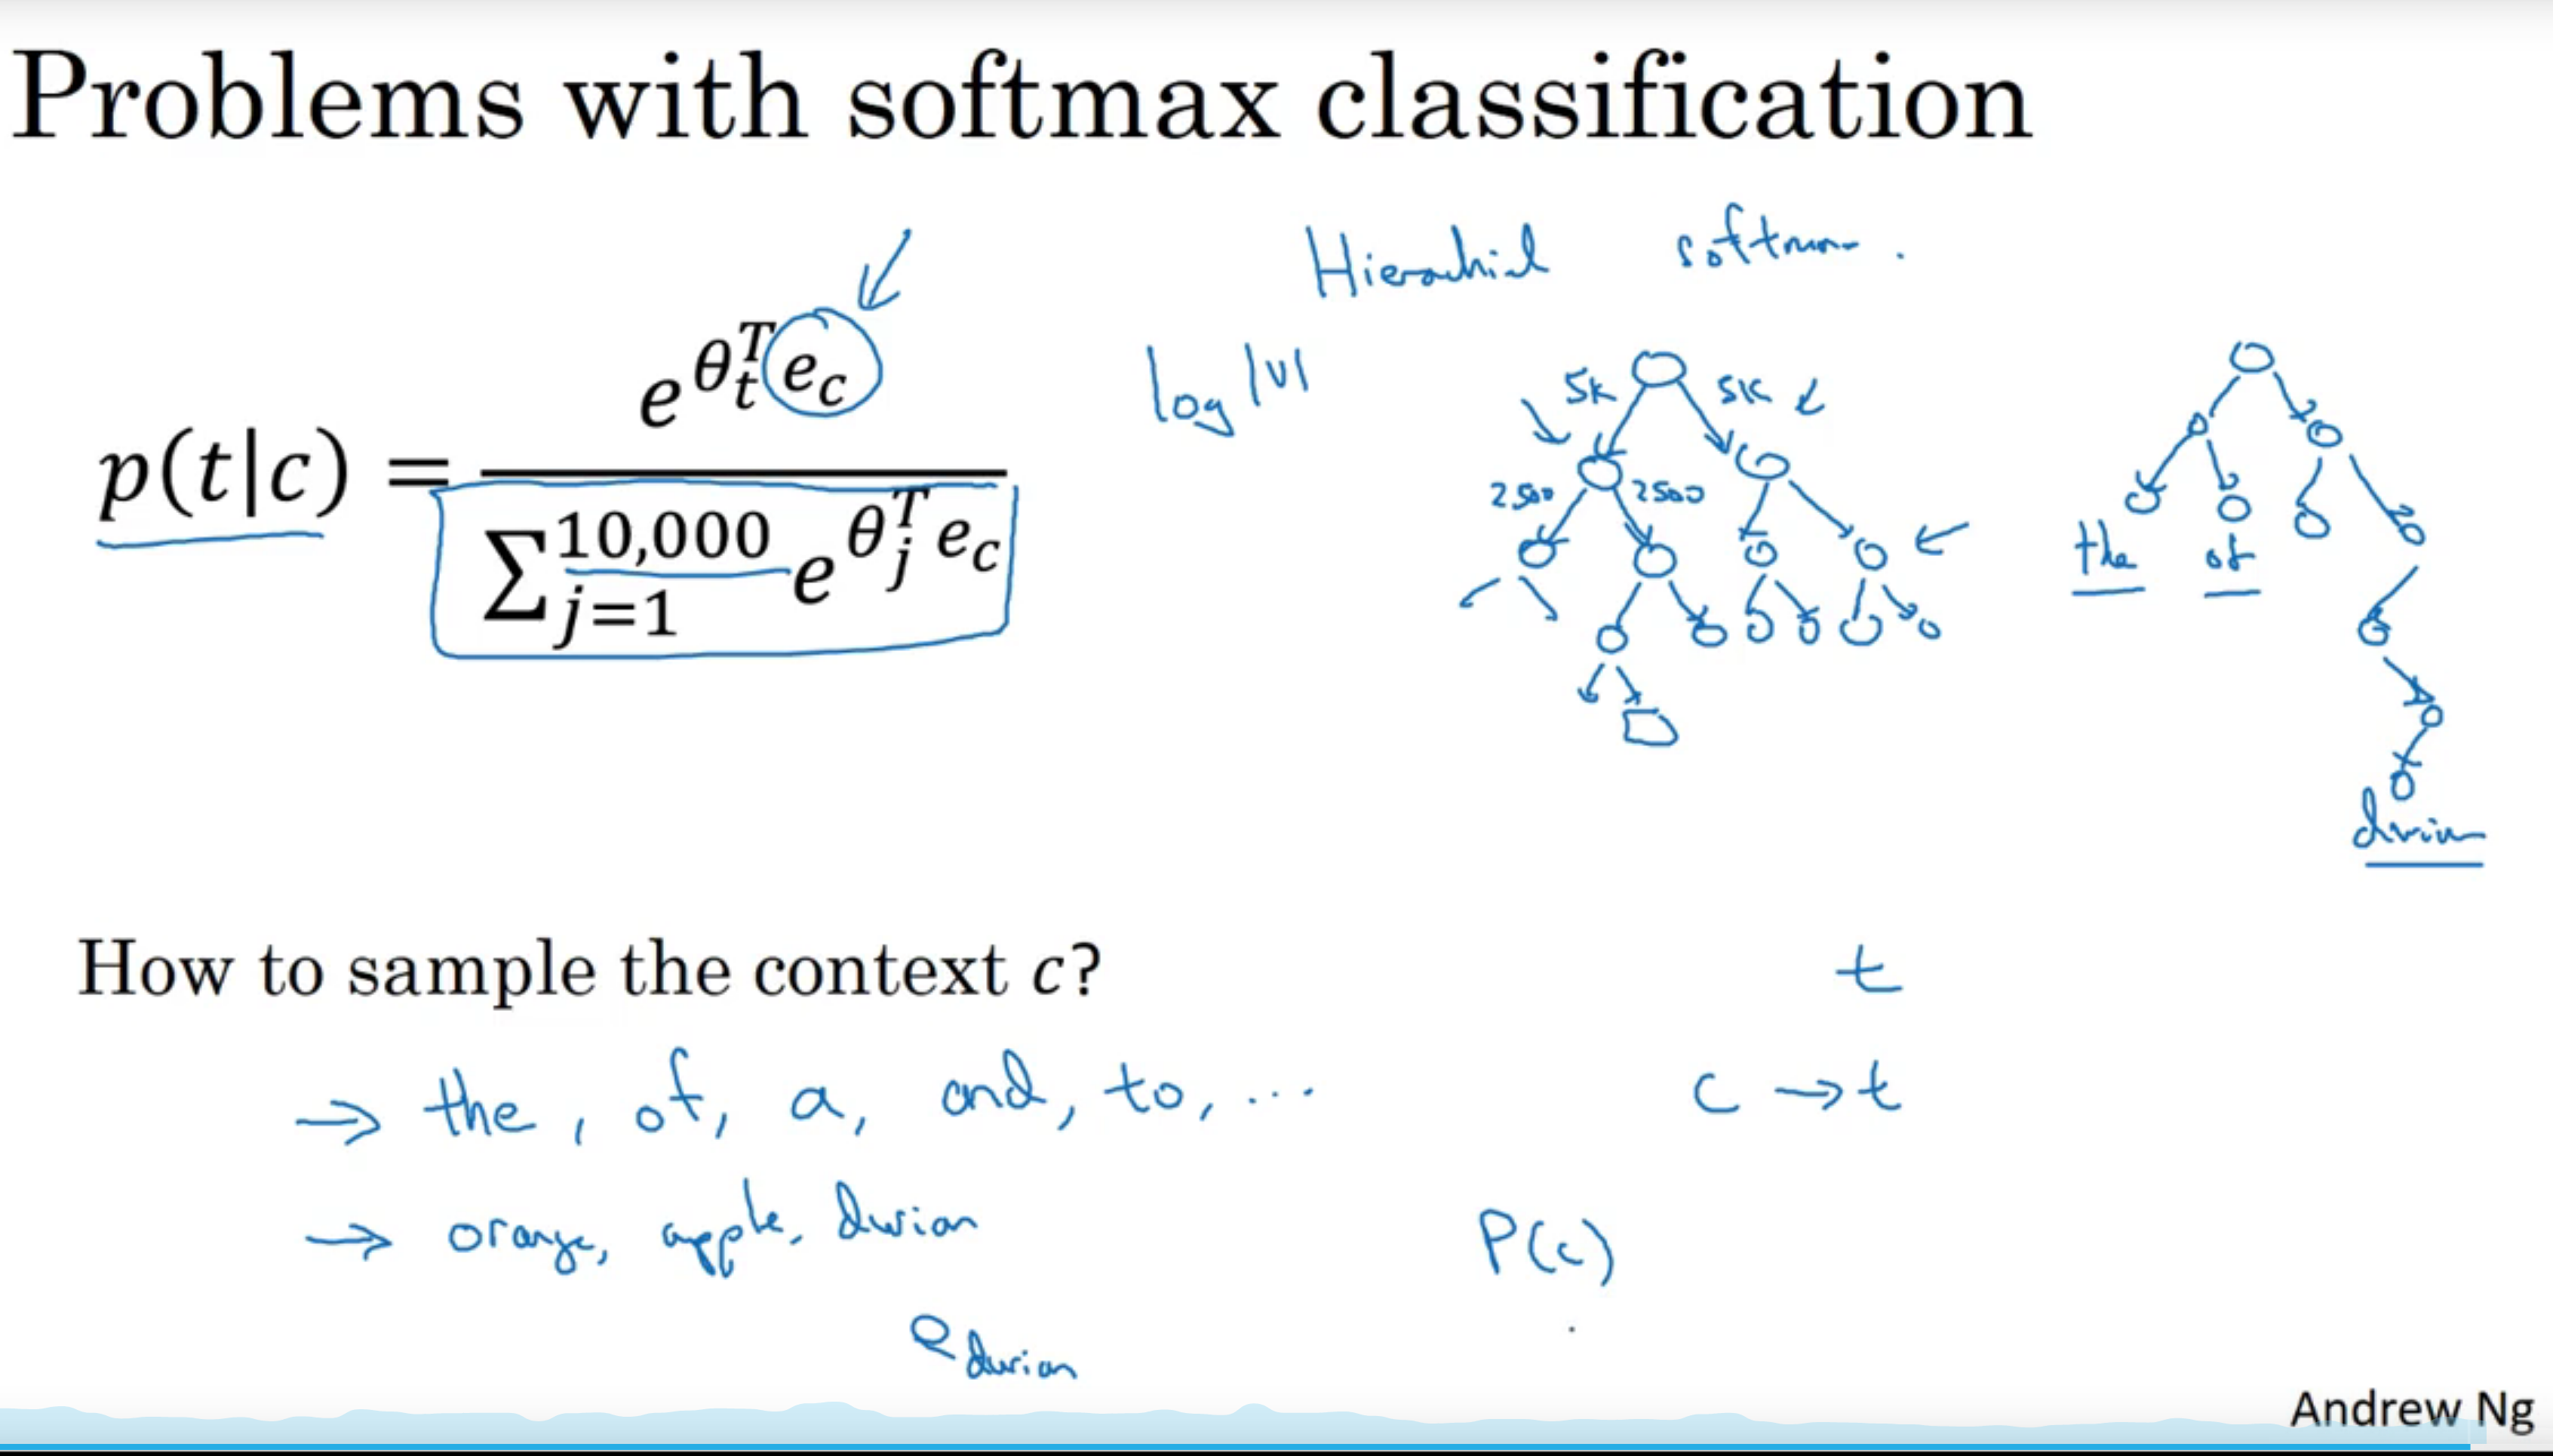 Problems with softmax classification
Hierachil softmax.
p(t|c) = e^{θ_t^T e_c} / ∑_{j=1}^{10,000} e^{θ_j^T e_c}
log |v|
5k 5k
2500 2500
the of
durian
How to sample the context c?
t
→ the, of, a, and, to, ...
c → t
→ orange, apple, durian
P(c)
e_durian
Andrew Ng